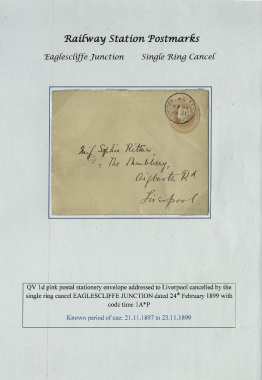 Railway Station Postmarks
Eaglescliffe Junction Single Ring Cancel
Miss Sophie Kitner
The Shrubbery
Aigburth Rd
Liverpool
QV 1d pink postal stationery envelope addressed to Liverpool cancelled by the
single ring cancel EAGLESCLIFFE JUNCTION dated 24th February 1899 with
code time 1A*P
Known period of use: 21.11.1897 to 23.11.1899